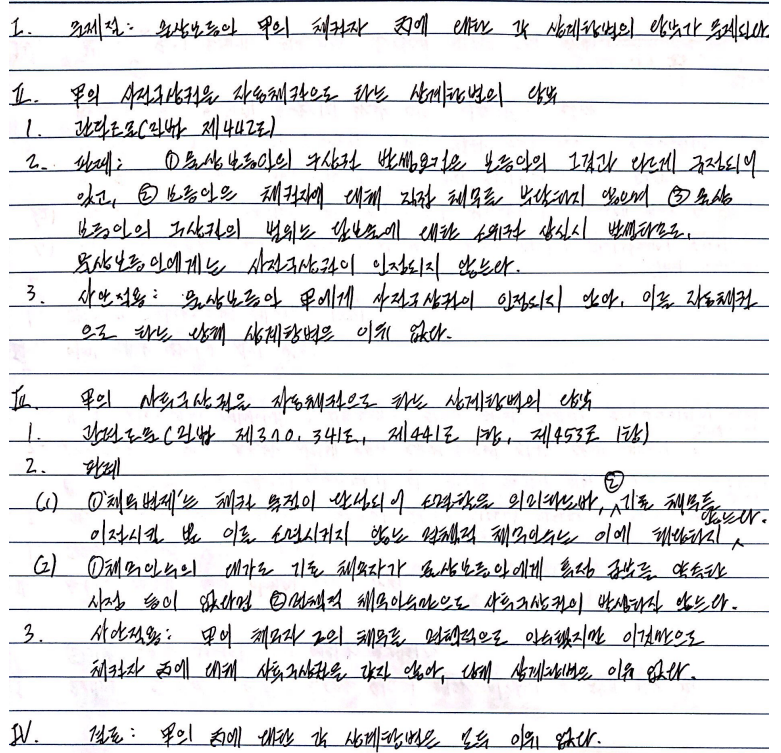 I. 문제점: 물상보증인 甲의 채권자 丙에 대한 각 상계항변의 당부가 문제된다.
II. 甲의 사전구상권을 자동채권으로 하는 상계항변의 당부
1. 관련조문(민법 제442조)
2. 판례: ① 물상보증인의 구상권 발생요건은 보증인의 그것과 다르게 규정되어
있고, ② 보증인은 채권자에 대해 직접 채무를 부담하지 않으며 ③ 물상
보증인의 구상권의 범위는 담보물에 대한 소유권 상실시 발생하므로,
물상보증인에게는 사전구상권이 인정되지 않는다.
3. 사안적용: 물상보증인 甲에게 사전구상권이 인정되지 않아, 이를 자동채권
으로 하는 상계항변은 이유 없다.
III. 甲의 사후구상권을 자동채권으로 하는 상계항변의 당부
1. 관련조문(민법 제370, 341조, 제441조 1항, 제453조 1항)
2. 판례
(1) ①'채무변제'는 채권 목적이 달성되어 소멸함을 의미하는바, ②기존 채무를
이전시킬 뿐 이를 소멸시키지 않는 면책적 채무인수는 이에 해당하지 않는다.
(2) ①채무인수의 대가로 기존 채무자가 물상보증인에게 특정 급부를 약속한
사정 등이 없다면 ②면책적 채무인수만으로 사후구상권이 발생하진 않는다.
3. 사안적용: 甲이 채무자 乙의 채무를 면책적으로 인수했지만 이것만으로
채권자 丙에 대해 사후구상권을 갖지 않아, 상계항변은 이유 없다.
IV. 결론: 甲의 丙에 대한 각 상계항변은 모두 이유 없다.